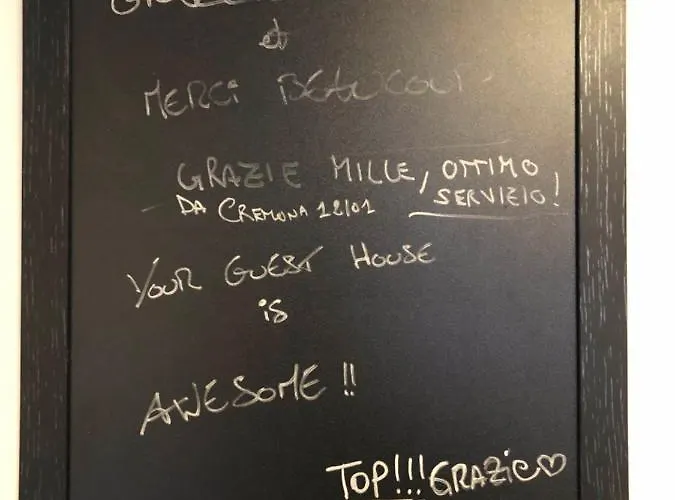 et
MERCI BEAUCOUP
GRAZIE MILLE, OTTIMO
SERVIZIO!
DA CREMONA 12/01
YOUR GUEST HOUSE
is
AWESOME !!
TOP!!! GRAZIE♡